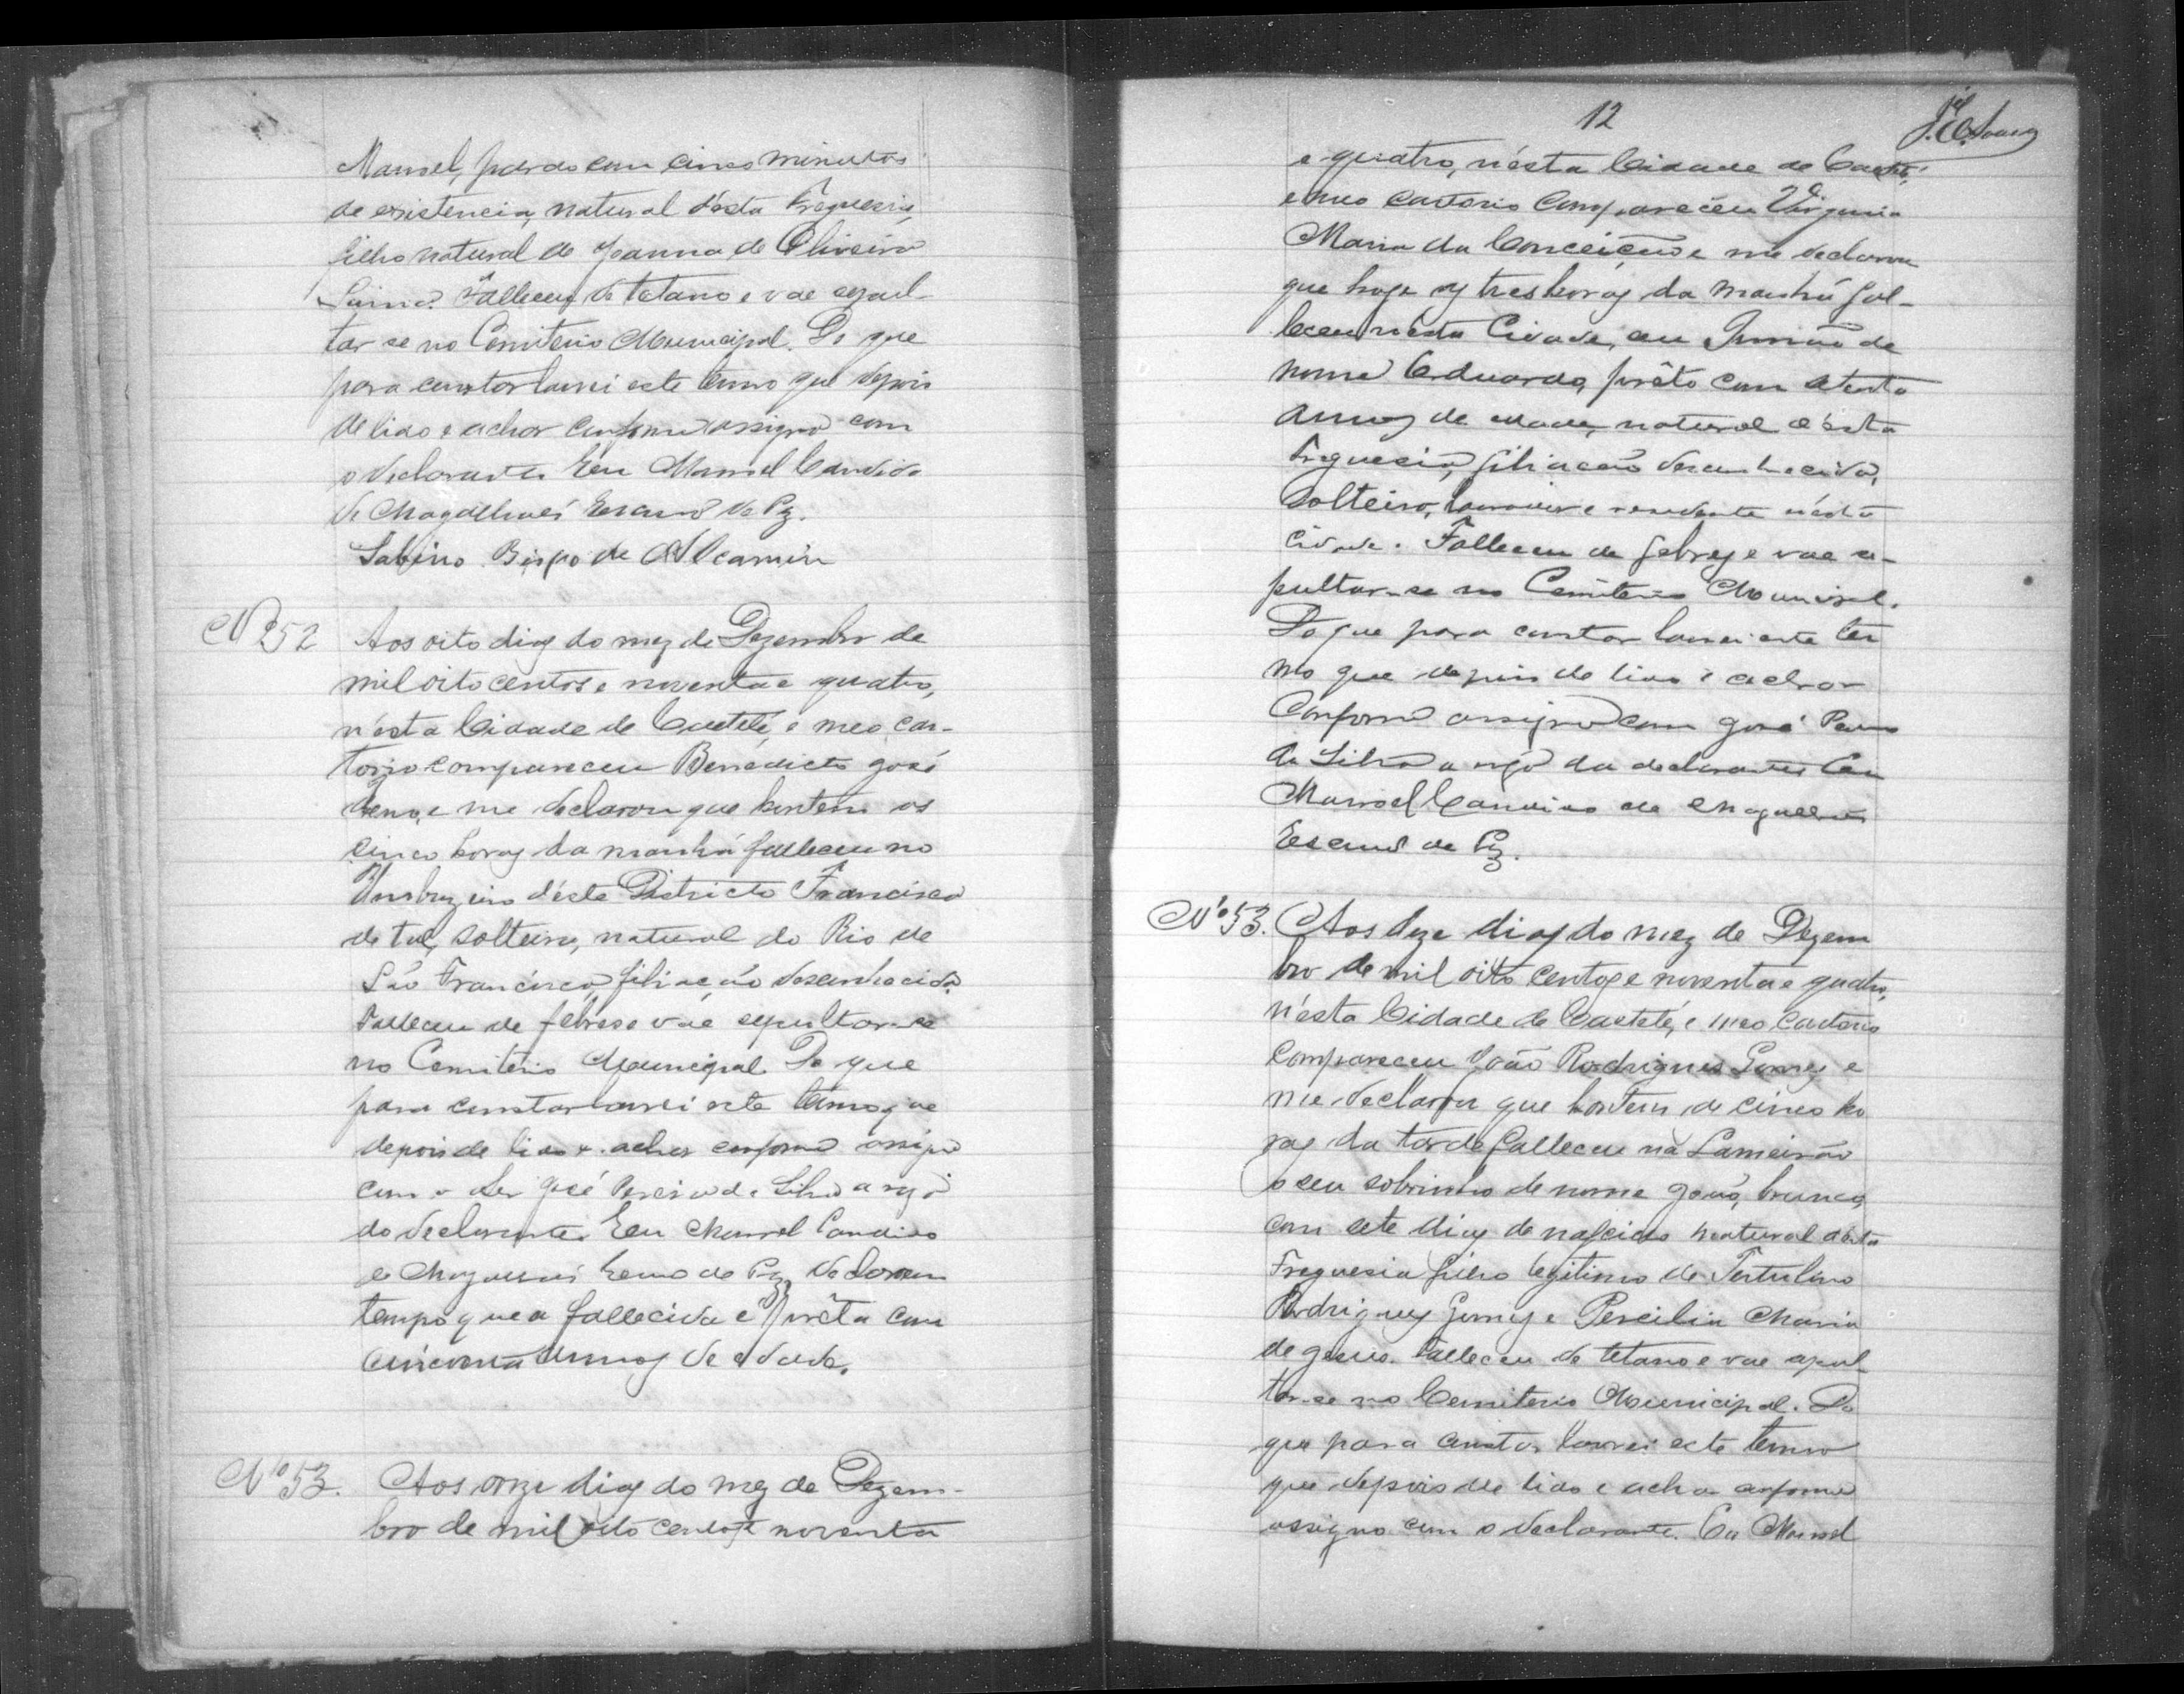 Manoel, pardo com cinco minutos
de existencia, natural d'esta Freguesia,
filho natural de Joanna de Oliveira
Falleceu de tetano e vae sepul-
tar se no Cemiterio Municipal. Do que
para constar lavrei este termo que depois
de lido e achar conforme assigno com
o declarante. Eu Manoel Candido
de Magalhães Escrivão de Paz.
Sabino Bispo de Alcamin
Nº 52 Aos oito dias do mez de Dezembro de
mil oito centos e noventa e quatro,
n'esta Cidade de Caetité, e meo car-
torio compareceu Benedicto José
e me declarou que hontem as
cinco horas da manhã falleceu no
d'este Districto Francisca
de tal, solteira, natural do Rio de
São Francisco, filiação desconhecida.
Falleceu de febres e vae sepultar-se
no Cemiterio Municipal. Do que
para constar lavrei este termo que
depois de lido e achar conforme assigno
com o José Pereira da Silva a rogo
do declarante. Eu Manoel Candido
de Magalhães Escrivão de Paz. Declaro em
tempo que a fallecida é prêta com
cincoenta annos de edade.
Nº 53. Aos onze dias do mez de Dezem-
bro de mil oito centos e noventa
12
e quatro, n'esta Cidade de Caetité,
e meo cartorio compareceu Virginia
Maria da Conceição e me declarou
que hoje as tres horas da manhã fal-
leceu n'esta Cidade, seu Irmão de
nome Eduardo, prêto com setenta
annos de edade, natural d'esta
Freguesia, filiação desconhecida,
solteiro, e residente n'esta
cidade. Falleceu de febres e vae se-
pultar-se no Cemiterio Municipal.
Do que para constar lavrei este ter
mo que depois de lido e achar
conforme assigno com José
da Silva a rogo da declarante. Eu
Manoel Candido de Magalhães
Escrivão de Paz.
Nº 53. Aos doze dias do mez de Dezem
bro de mil oito centos e noventa e quatro,
n'esta Cidade de Caetité, e meo Cartorio
compareceu João Rodrigues Gomes e
me declarou que hontem as cinco ho
ras da tarde falleceu na Lameirão
o seu sobrinho de nome João, branco,
com sete dias de nascido natural d'esta
Freguesia filho legitimo de Tertulino
Rodrigues Gomes e Percilia Maria
de Jesus. Falleceu de tetano e vae sepul
tar-se no Cemiterio Municipal. Do
que para constar lavrei este termo
que depois de lido e achar conforme
assigno com o declarante. Eu Manoel